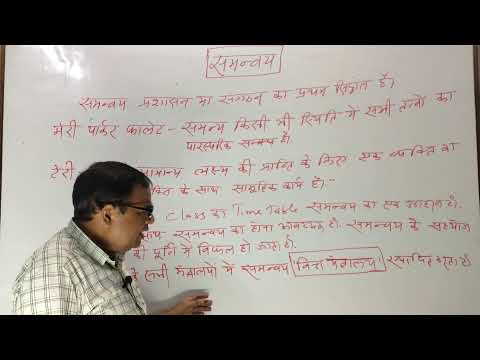 समन्वय
समन्वय प्रशासन या संगठन का प्रथम सिद्धांत है।
मेरी पार्कर फालेट - समन्वय किसी भी स्थिति में सभी तत्वों का
पारस्परिक सम्बन्ध है।
टैरी - सामान्य लक्ष्य की प्राप्ति के लिए एक व्यक्ति का
के साथ सामूहिक कार्य है।
Class का Time Table समन्वय का एक उदाहरण है।
समन्वय का होना आवश्यक है। समन्वय के
की पूर्ति में विफल हो जाता है।
के सभी मंत्रालयों में समन्वय वित्त मंत्रालय स्थापित करता है